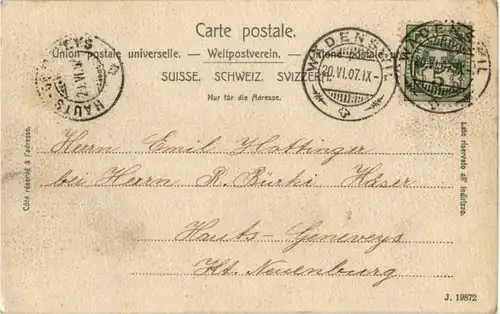 Carte postale.
Union postale universelle. — Weltpostverein. — Unione postale universale.
SUISSE. SCHWEIZ. SVIZZERA.
Nur für die Adresse.
WÄDENSWIL
20.VI.07.IX-
WÄDENSWIL
5
HAUTS-GENEVEYS
Côté réservé à l'adresse.
Lato riservato all' indirizzo.
Herrn Emil Hottinger
bei Herrn R. Bürki Käser
Hauts-Geneveys
Kt. Neuenburg
J. 19872